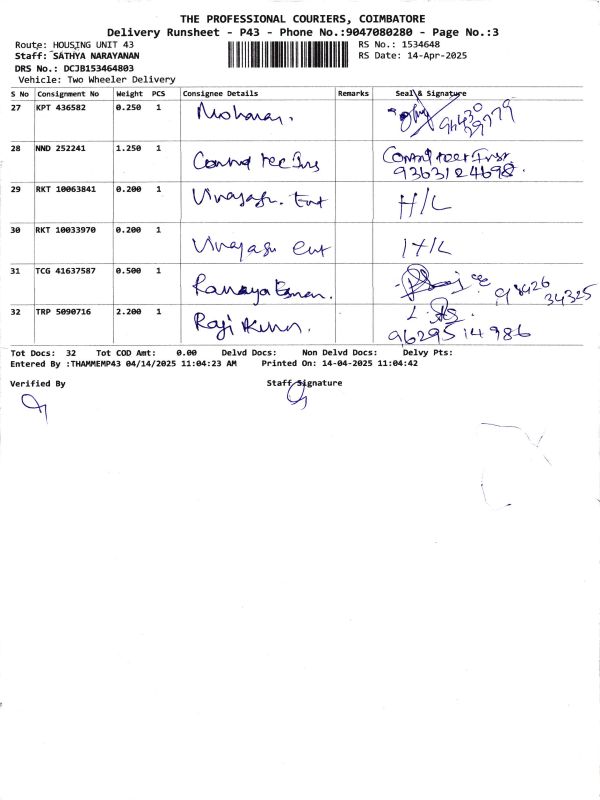 THE PROFESSIONAL COURIERS, COIMBATORE
Delivery Runsheet - P43 - Phone No.:9047080280 - Page No.:3
Route: HOUSING UNIT 43 RS No.: 1534648
Staff: SATHYA NARAYANAN RS Date: 14-Apr-2025
DRS No.: DCJB153464803
Vehicle: Two Wheeler Delivery
S No Consignment No Weight PCS Consignee Details Remarks Seal & Signature
27 KPT 436582 0.250 1 Mohanan.
28 NND 252241 1.250 1
9363124698.
29 RKT 10063841 0.200 1 H/L
30 RKT 10033970 0.200 1 H/L
31 TCG 41637587 0.500 1 98426
34325
32 TRP 5090716 2.200 1
9629514986
Tot Docs: 32 Tot COD Amt: 0.00 Delvd Docs: Non Delvd Docs: Delvy Pts:
Entered By :THAMMEMP43 04/14/2025 11:04:23 AM Printed On: 14-04-2025 11:04:42
Verified By Staff Signature